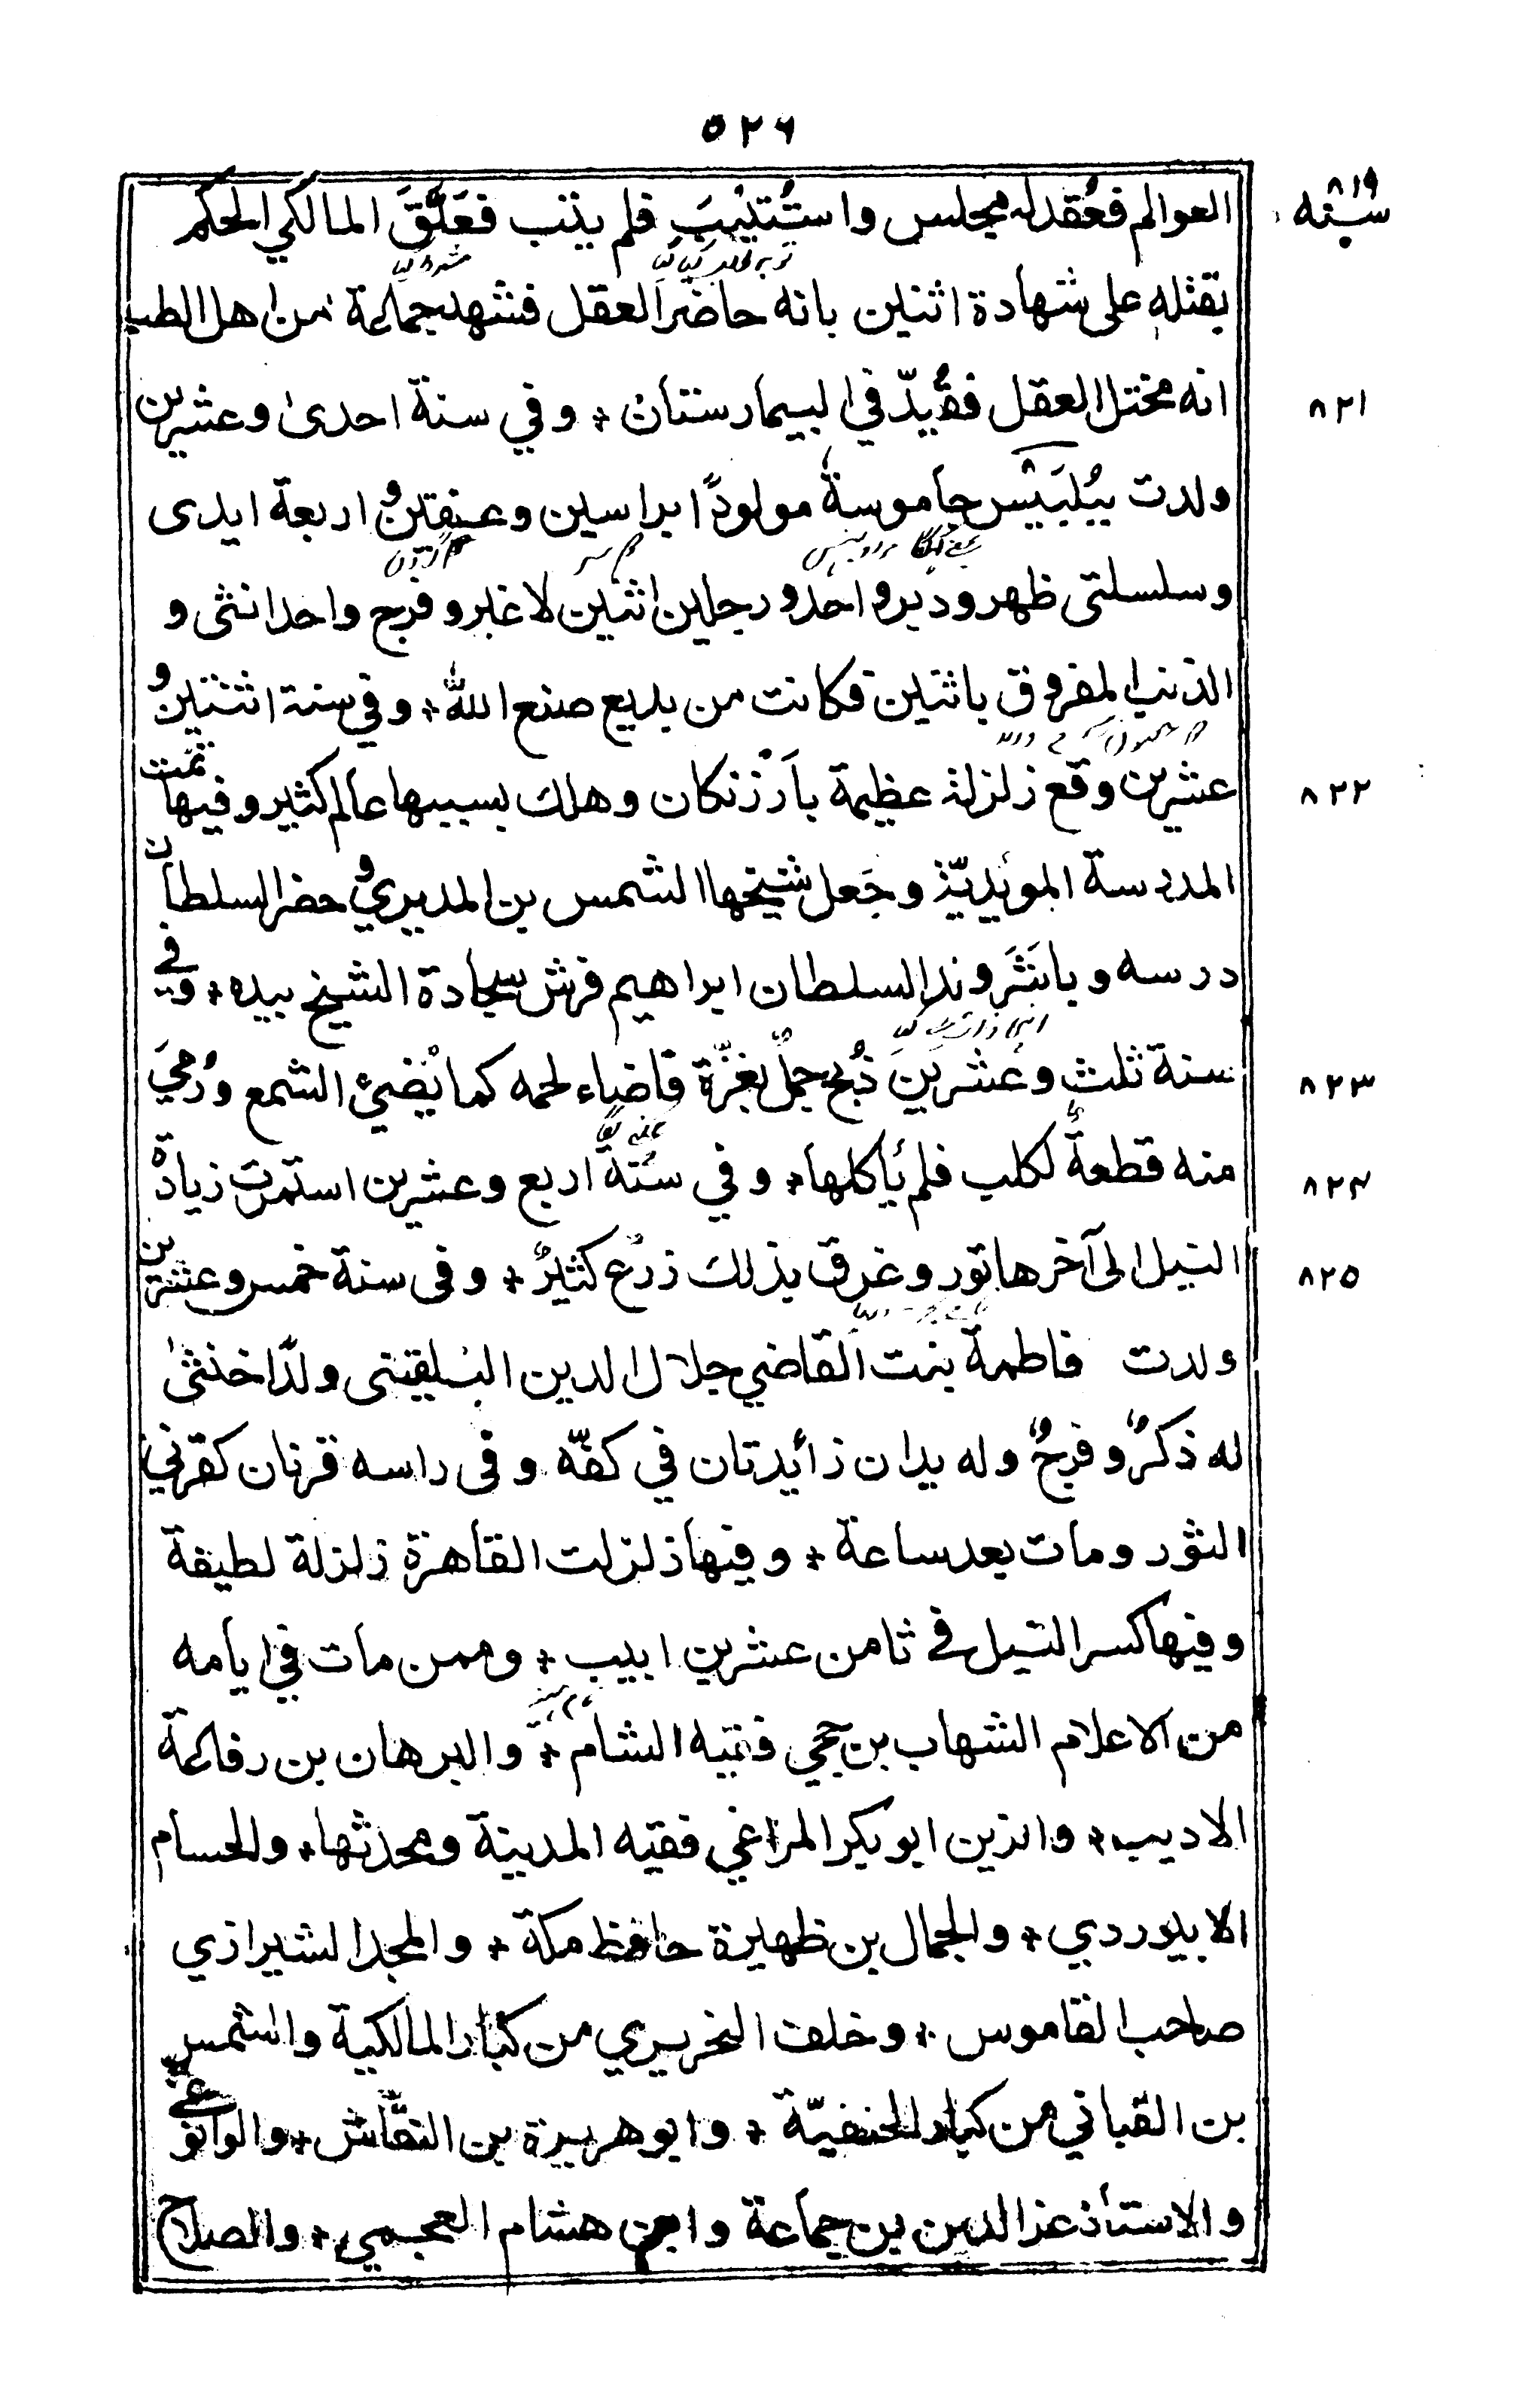 ٥٢٦
سنه ٨١٩
العوالم فعُقد له مجلس واستُتيبَ فلم يتب فعَلَّقَ المالكي الحكم
بقتله على شهادة اثنين بانه حاضر العقل فشهد جماعة من اهل الطب
انه مختل العقل فقُيّد في البيمارستان * و في سنة احدى وعشرين
٨٢١
ولدت ببُلبَيْس جاموسة مولودًا براسين وعنقين و اربعة ايدى
وسلسلتى ظهر ودبر واحد و رجلين اثنين لا غير و فرج واحد انثى و
الذنب المفروق باثنين فكانت من بديع صنع الله * و في سنة اثنتين و
عشرين وقع زلزلة عظيمة بأرْزنكان وهلك بسببها عالم كثير و فيها تمت
٨٢٢
المدرسة المؤيديّة وجَعل شيخها الشمس بن المديري و حضر السلطان
درسه و باشَرَ ولد السلطان ابراهيم فرش سجادة الشيخ بيده * و في
سنة ثلث وعشرين ذُبح جملٌ بغزّة فاضاء لحمه كما يُضيئ الشمع ورُميَ
٨٢٣
منه قطعةٌ لكلب فلم يأكلها * و في سنة اربع وعشرين استمرت زيادة
٨٢٤
النيل الى آخر هاتور وغرق بذلك زرع كثيرٌ * و فى سنة خمس وعشرين
٨٢٥
ولدت فاطمة بنت القاضي جلال الدين البلقينى ولدًا خنثى
له ذكرٌ و فرجٌ وله يدان زائدتان في كتفه و فى راسه قرنان كقرني
الثور ومات بعد ساعة * و فيها زلزلت القاهرة زلزلة لطيفة
و فيها كسر النيل في ثامن عشرين ابيب * وممن مات في ايامه
من الاعلام الشهاب بن حجي فقيه الشام * والبرهان بن رفاعة
الاديب * والزين ابو بكر المراغي فقيه المدينة ومحدثها * والحسام
الابيوردي * والجمال بن ظهيرة حافظ مكة * والمجد الشيرازي
صاحب القاموس * وخلف النحريري من كبار المالكية والشمس
بن القباني من كبار الحنفيّة * وابو هريرة بن النقّاش * والوانوغي
والاستأذ عز الدين بن جماعة وابن هشام العجمي * والصلاح